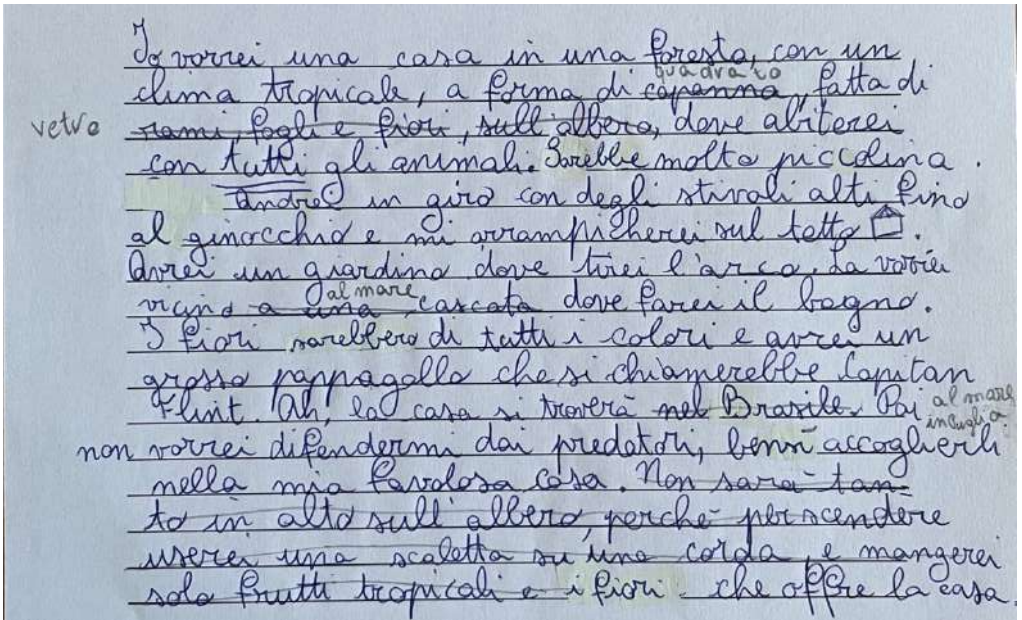 Io vorrei una casa in una foresta, con un
quadrato
clima tropicale, a forma di capanna, fatta di
vetro rami, fogli e fiori, sull'albero, dove abiterei
con tutti gli animali. Sarebbe molto piccolina.
Andrei in giro con degli stivali alti fino
al ginocchio e mi arrampicherei sul tetto.
Avrei un giardino dove tirei l'arco. La vorrei
al mare
vicino a una cascata dove farei il bagno.
I fiori sarebbero di tutti i colori e avrei un
grosso pappagallo che si chiamerebbe Capitan
Flint. Ah, la casa si troverà nel Brasile. Poi al mare
in
non vorrei difendermi dai predatori, bensì accoglierli
nella mia favolosa casa. Non sarà tan=
to in alto sull'albero, perché per scendere
userei una scaletta su una corda, e mangerei
solo frutti tropicali e i fiori che offre la casa.